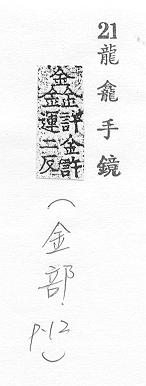 21
龍龕手鏡
金許
金運二反
(金部. P.12)